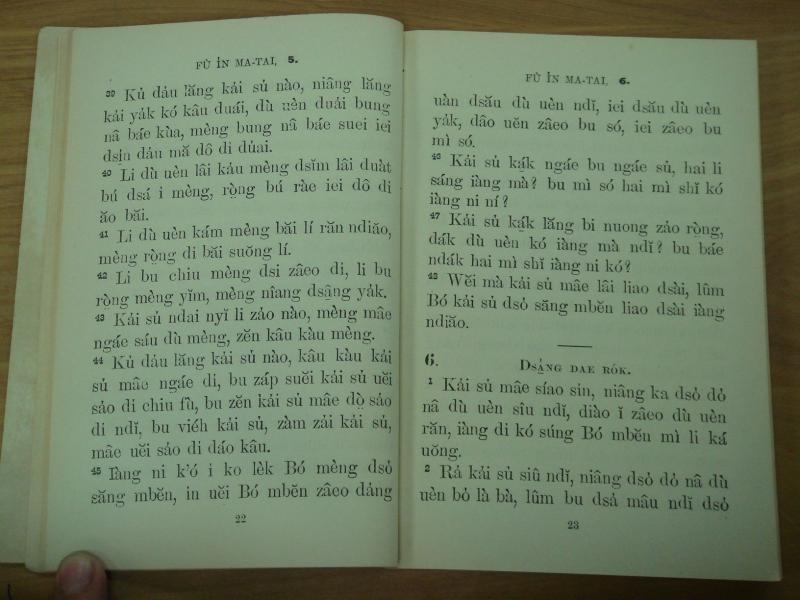 FÙ ỈN MA-TAI, 5.
39 Kủ dảu lăng kải sủ nào, niâng lăng
kải yảk kó kâu duái, dù uèn duải bung
nâ báe kùa, mèng bung nâ báe suei iei
dsịn dảu mă dô di dủai.
40 Li dù uèn lâi kảu mèng dsĭm lâi duàt
bú dsá i mèng, rọ̀ng bú ràe iei dô di
ăo băi.
41 Li dù uèn kám mèng băi lí răn ndiăo,
mèng rọ̀ng di băi suŏng lí.
42 Li bu chiu mèng dsi zâeo di, li bu
rọ̀ng mèng yĭm, mèng nîang dsậng yảk.
43 Kải sủ ndai nyĭ li zảo nào, mèng mâe
ngáe sáu dù mèng, zĕn kâu kàu mèng.
44 Kủ dảu lăng kải sủ nào, kâu kàu kải
sủ mâe ngáe di, bu záp suĕi kải sủ uĕi
sảo di chiu fù, bu zĕn kải sủ mâe dọ̀ sảo
di ndĭ, bu viéh kải sủ, zàm zải kải sủ,
mâe uĕi sảo di dáo kâu.
45 Iàng ni k'ó i ko lèk Bó mèng dsỏ
săng mbĕn, in uĕi Bó mbĕn zâeo dảng
22
FÙ ỈN MA-TAI, 6.
uàn dsău dù uèn ndĭ, iei dsău dù uèn
yảk, dâo uĕn zâeo bu só, iei zâeo bu
mì só.
46 Kải sủ kák ngáe bu ngáe sủ, hai li
sáng iàng mà? bu mì só hai mì shĭ kó
iàng ni ní?
47 Kải sủ kák lăng bi nuong zảo rọ̀ng,
dák dù uèn kó iàng mà ndĭ? bu báe
ndák hai mì shĭ iàng ni kó?
48 Wĕi mà kải sủ mâe lâi liao dsài, lûm
Bó kải sủ dsỏ săng mbĕn liao dsài iàng
ndiăo.
6. DSẢNG DAE RÓK.
1 Kải sủ mâe síao sin, niâng ka dsỏ dỏ
nâ dù uèn sîu ndĭ, diào ĭ zâeo dù uèn
răn, iàng di kó súng Bó mbĕn mì li ká
uŏng.
2 Rả kải sủ siû ndĭ, niâng dsỏ dỏ nâ dù
uèn bỏ là bà, lûm bu dsả mâu ndĭ dsỏ
23